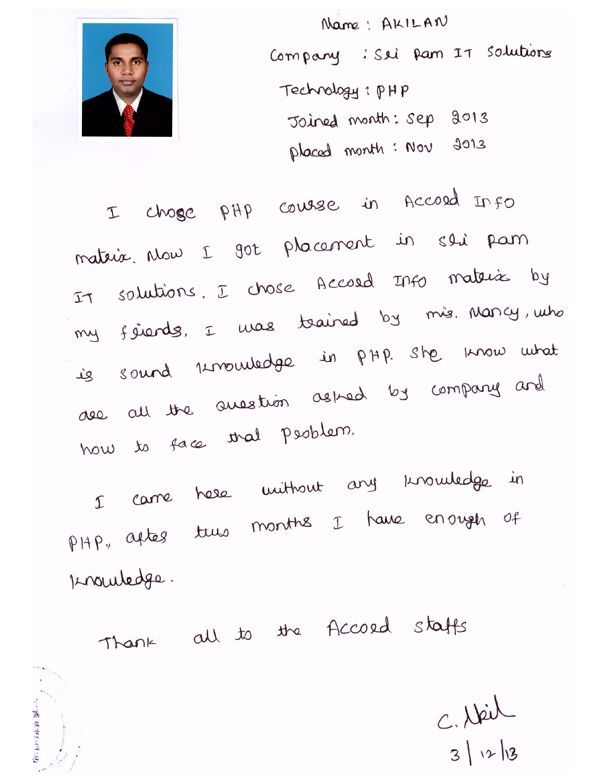 Name : AKILAN
Company : Sri Ram IT Solutions
Technology : PHP
Joined month : Sep 2013
Placed month : Nov 2013
I chose PHP course in Accord Info
matrix. Now I got placement in Sri Ram
IT solutions. I chose Accord Info matrix by
my friends. I was trained by mis. Nancy, who
is sound knowledge in PHP. She know what
are all the question asked by company and
how to face that problem.
I came here without any knowledge in
PHP., after two months I have enough of
knowledge.
Thank all to the Accord staffs
C. Akil
3/12/13